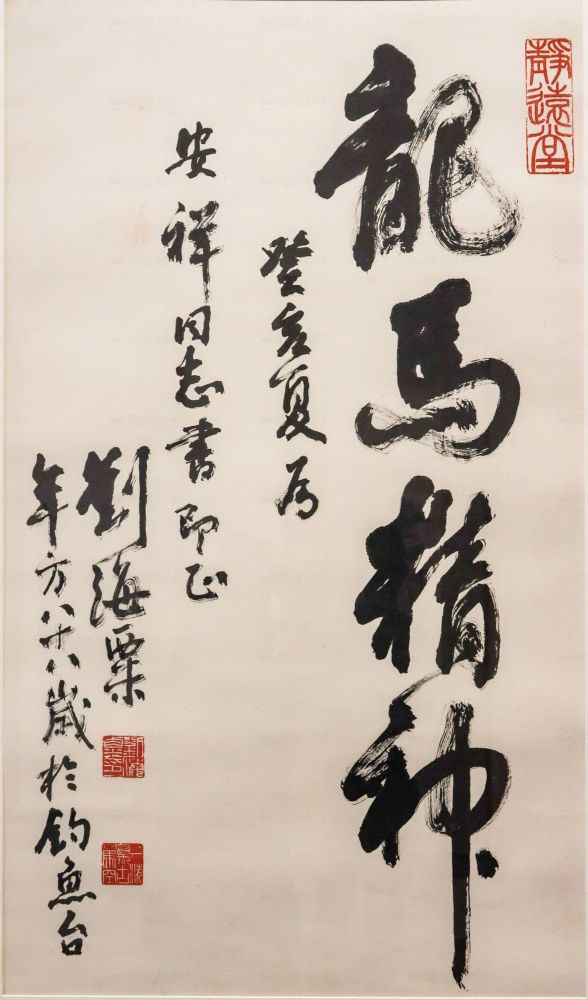 靜遠堂
龍馬精神
癸亥夏为
安祥同志書即正
劉海粟
年方八十八歲於釣魚台